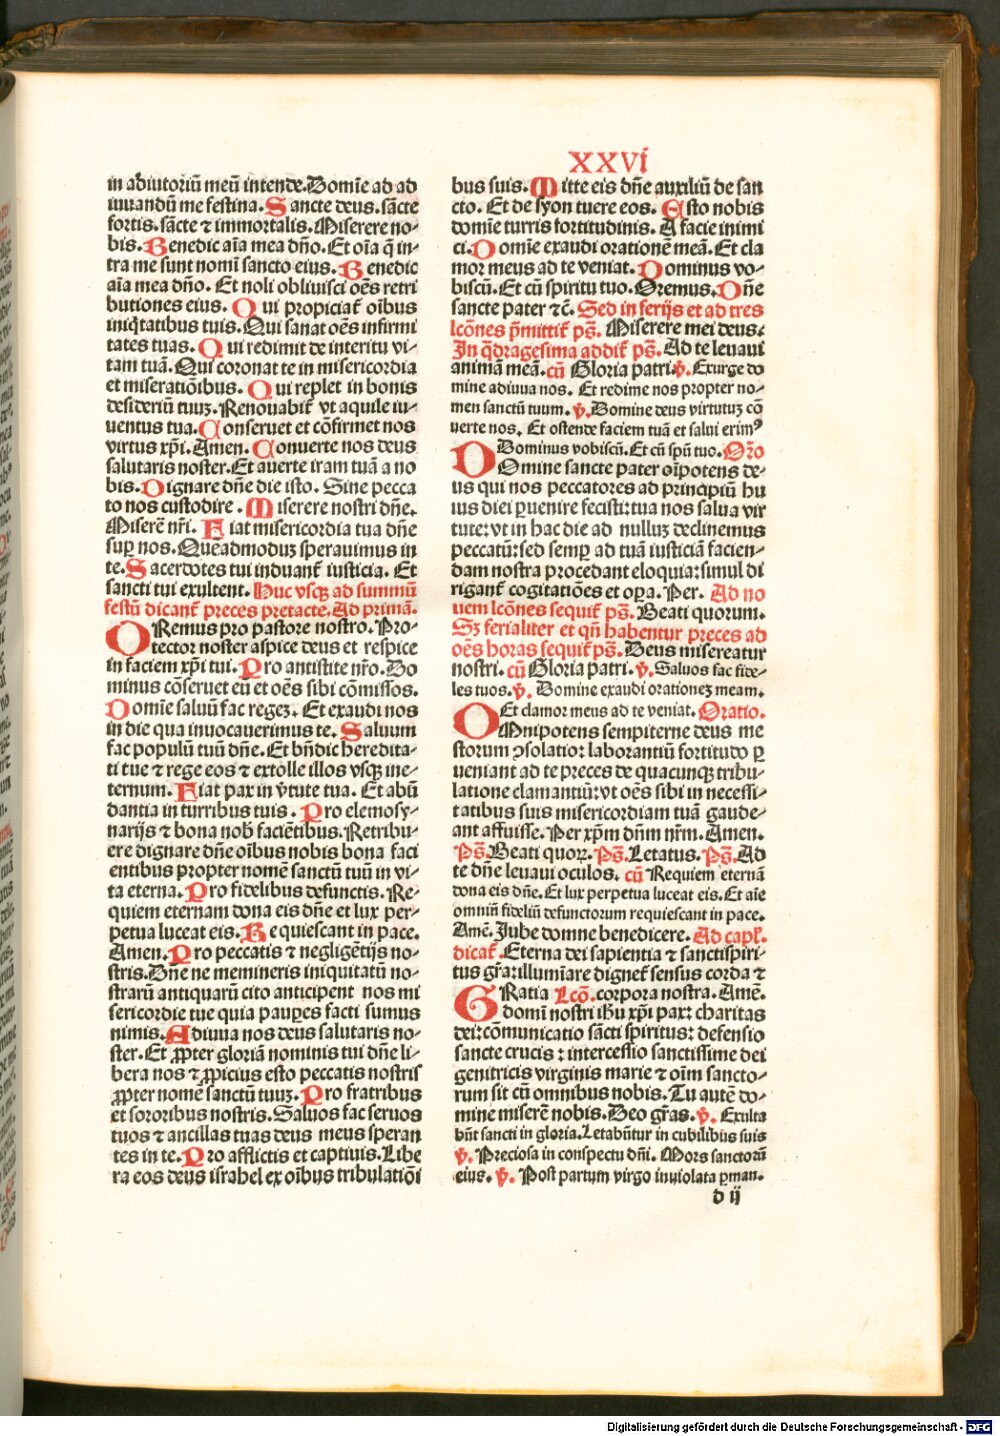 XXVI
in adiutoriū meū intende. Domīe ad ad
iuuandū me festina. Sancte deus. sācte
fortis. sācte ⁊ immortalis. Miserere no-
bis. Benedic aīa mea dño. Et oīa q̄ in-
tra me sunt nomī sancto eius. Benedic
aīa mea dño. Et noli obliuisci oēs retri
butiones eius. Qui propiciat᷑ oībus
iniq̇tatibus tuis. Qui sanat oēs infirmi
tates tuas. Qui redimit de interitu vi-
tam tuā. Qui coronat te in misericordia
et miseratiōibus. Qui replet in bonis
desideriū tuuꝫ. Renouabit᷑ vt aquile iu-
uentus tua. Conseruet et cōfirmet nos
virtus xp̄i. Amen. Conuerte nos deus
salutaris noster. Et auerte iram tuā a no
bis. Dignare dñe die isto. Sine pecca
to nos custodire. Miserere nostri dñe.
Miserē nr̄i. Fiat misericordia tua dñe
suꝑ nos. Quēadmoduꝫ sperauimus in
te. Sacerdotes tui induant᷑ iusticia. Et
sancti tui exultent. Huc vsqꝫ ad summū
festū dicant᷑ preces pretacte. Ad primā.
ORemus pro pastore nostro. Pro-
tector noster aspice deus et respice
in faciem xp̄i tui. Pro antistite nr̄o. Do
minus cōseruet eū et oēs sibi cōmissos.
Domīe saluū fac regeꝫ. Et exaudi nos
in die qua inuocauerimus te. Saluum
fac populū tuū dñe. Et bñdic heredita-
ti tue ⁊ rege eos ⁊ extolle illos vsqꝫ ine-
ternum. Fiat pax in v̄tute tua. Et abū
dantia in turribus tuis. Pro elemosy-
narijs ⁊ bona nob̄ faciētibus. Retribu-
ere dignare dñe oībus nobis bona faci
entibus propter nomē sanctū tuū in vi-
ta eterna. Pro fidelibus defunctis. Re-
quiem eternam dona eis dñe et lux per-
petua luceat eis. Requiescant in pace.
Amen. Pro peccatis ⁊ negligētijs no-
stris. Dñe ne memineris iniquitatū no-
strarū antiquarū cito anticipent nos mi
sericordie tue quia pauꝑes facti sumus
nimis. Adiuua nos deus salutaris no-
ster. Et ꝓpter gloriā nominis tui dñe li-
bera nos ⁊ ꝓpicius esto peccatis nostris
ꝓpter nomē sanctū tuuꝫ. Pro fratribus
et sororibus nostris. Saluos fac seruos
tuos ⁊ ancillas tuas deus meus speran
tes in te. Pro afflictis et captiuis. Libe
ra eos deus israhel ex oībus tribulatiōi
bus suis. Mitte eis dñe auxiliū de san
cto. Et de syon tuere eos. Esto nobis
domīe turris fortitudinis. A facie inimi
ci. Domīe exaudi orationē meā. Et cla
mor meus ad te veniat. Dominus vo-
biscū. Et cū spiritu tuo. Oremus. Dñe
sancte pater ⁊c̄. Sed in ferijs et ad tres
lcōnes p̄mittit᷑ ps̄. Miserere mei deus.
In q̄dragesima addit᷑ ps̄. Ad te leuaui
animā meā. cū Gloria patri. v̄. Exurge do
mine adiuua nos. Et redime nos propter no-
men sanctū tuum. v̄. Domine deus virtutuꝫ cō
uerte nos. Et ostende faciem tuā et salui erimꝰ
Dominus vobiscū. Et cū spū tuo. Or̄o
DOmine sancte pater oīpotens de-
us qui nos peccatores ad principiū hu
ius diei ꝑuenire fecisti: tua nos salua vir
tute: vt in hac die ad nulluꝫ declinemus
peccatū: sed semꝑ ad tuā iusticiā facien-
dam nostra procedant eloquia: simul di
rigant᷑ cogitatiōes et oꝑa. Per. Ad no
uem lcōnes sequit᷑ ps̄. Beati quorum.
Sꝫ ferialiter et qñ habentur preces ad
oēs horas sequit᷑ ps̄. Deus misereatur
nostri. cū Gloria patri. v̄. Saluos fac fide-
les tuos. v̄. Domine exaudi orationeꝫ meam.
Et clamor meus ad te veniat. Oratio.
OMnipotens sempiterne deus me
storum ꝯsolatio: laborantiū fortitudo ꝑ
ueniant ad te preces de quacunqꝫ tribu-
latione clamantiū: vt oēs sibi in necessi-
tatibus suis misericordiam tuā gaude-
ant affuisse. Per xp̄m dñm nr̄m. Amen.
Ps̄. Beati quoꝝ. Ps̄. Letatus. Ps̄. Ad
te dñe leuaui oculos. cū Requiem eternā
dona eis dñe. Et lux perpetua luceat eis. Et aīe
omniū fideliū defunctorum requiescant in pace.
Amē. Jube domne benedicere. Ad capl̓.
dicat᷑. Eterna dei sapientia ⁊ sanctispiri-
tus gr̄a: illumīare dignet᷑ sensus corda ⁊
GRatia Lcō. corpora nostra. Amē.
domī nostri ihu xp̄i pax: charitas
dei: cōmunicatio sācti spiritus: defensio
sancte crucis: intercessio sanctissime dei
genitricis virginis marie ⁊ oīm sancto-
rum sit cū omnibus nobis. Tu autē do-
mine miserē nobis. Deo gr̄as. v̄. Exulta
būt sancti in gloria. Letabūtur in cubilibus suis
v̄. Preciosa in conspectu dñi. Mors sanctorū
eius. v̄. Post partum virgo inuiolata ꝑman.
d ij
Digitalisierung gefördert durch die Deutsche Forschungsgemeinschaft - DFG